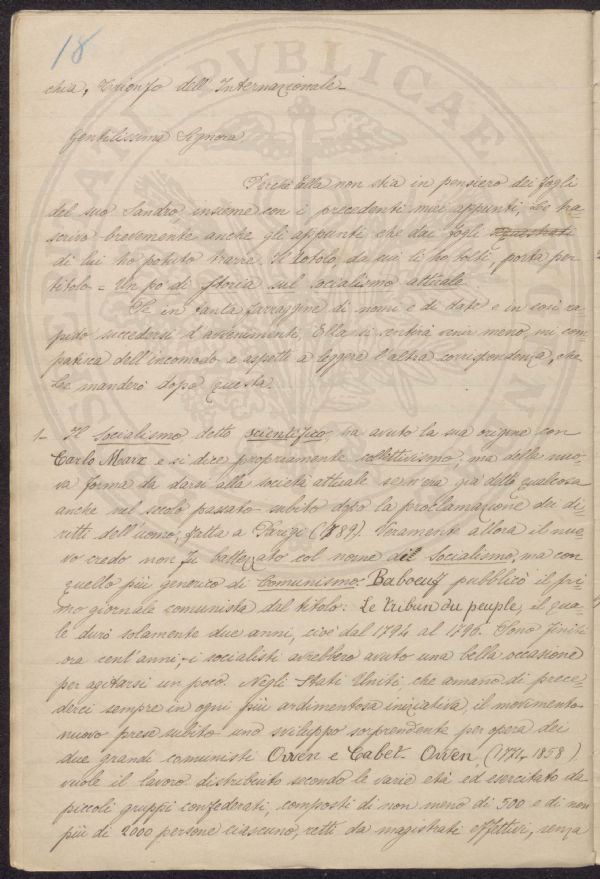 18
chia, Trionfo dell'Internazionale.
Gentilissima Signora
Perchè Ella non stia in pensiero dei fogli
del suo Sandro, insieme con i precedenti miei appunti, Le tra-
scrivo brevemente anche gli appunti, che dai fogli
di lui ho potuto trarre. Il rotolo da cui li ho tolti, porta per
titolo = Un po' di storia sul socialismo attuale.
Se in tanta farraggine di nomi e di date e in così ra-
pido succedersi d'avvenimenti, Ella si sentirà venir meno, mi com-
patisca dell'incomodo e aspetti a leggere l'altra corrispondenza, che
Le manderò dopo questa.
1- Il Socialismo detto scientifico, ha avuto la sua origine con
Carlo Marx e si dice propriamente collettivismo, ma della nuo-
va forma da darsi alla società attuale se n'era già detto qualcosa
anche nel secolo passato subito dopo la proclamazione dei di-
ritti dell'uomo, fatta a Parigi (1789). Veramente allora il nuo-
vo credo non fu battezzato col nome del Socialismo, ma con
quello più generico di Comunismo. Baboeuf pubblicò il pri-
mo giornale comunista dal titolo: Le tribun du peuple, il qua-
le durò solamente due anni, cioè dal 1794 al 1796. Sono finiti
ora cent'anni, i socialisti avrebbero avuto una bella occasione
per agitarsi un poco. Negli Stati Uniti, che amano di prece-
derci sempre in ogni più ardimentosa iniziativa, il movimento
nuovo prese subito uno sviluppo sorprendente per opera dei
due grandi comunisti Owen e Cabet. Owen, (1771, 1858)
vuole il lavoro distribuito secondo le varie età ed esercitato da
piccoli gruppi confederati, composti di non meno di 500 e di non
più di 2000 persone ciascuno, retti da magistrati effettivi, senza